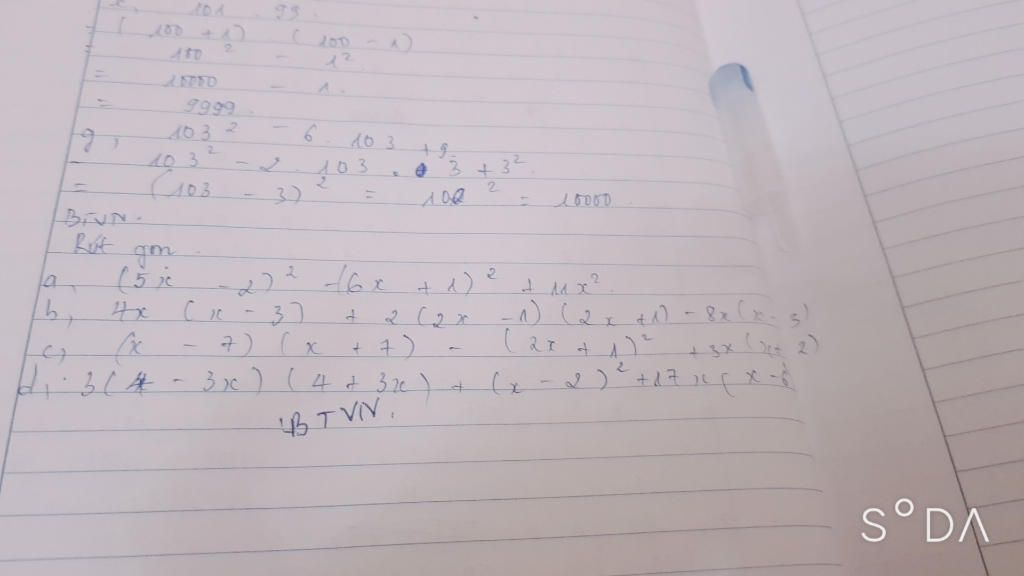 101 . 99.
= (100 + 1) (100 - 1)
= 100² - 1²
= 10000 - 1.
= 9999.
g, 103² - 6. 103 + 9
= 103² - 2. 103 . 3 + 3².
= (103 - 3)² = 100² = 10000.
BTVN.
Rút gọn.
a, (5x - 2)² - (6x + 1)² + 11x².
b, 4x (x - 3) + 2 (2x - 1) (2x + 1) - 8x (x - 3)
c, (x - 7) (x + 7) - (2x + 1)² + 3x (x + 2)
d, 3(4 - 3x) (4 + 3x) + (x - 2)² + 17x ( x -
BTVN.
S°DA